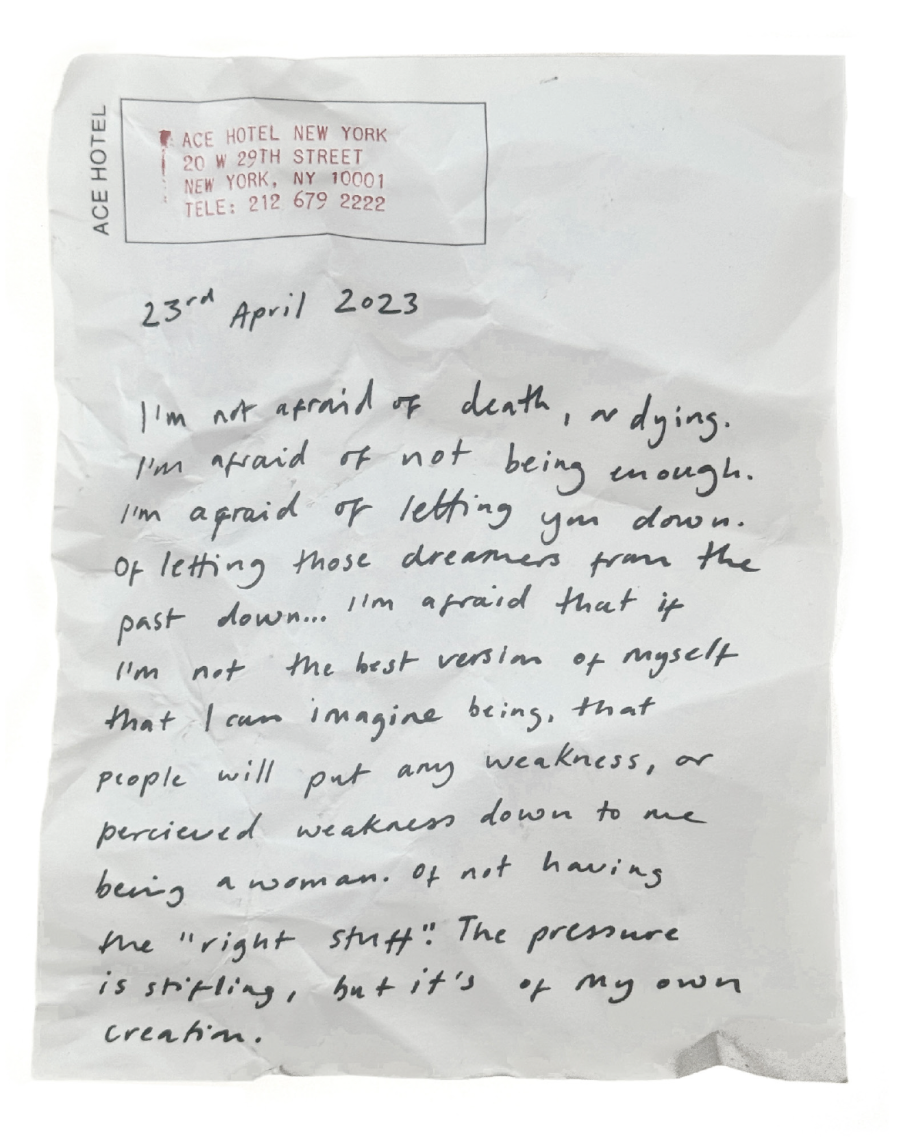 ACE HOTEL
ACE HOTEL NEW YORK
20 W 29TH STREET
NEW YORK, NY 10001
TELE: 212 679 2222
23rd April 2023
I'm not afraid of death, or dying.
I'm afraid of not being enough.
I'm afraid of letting you down.
Of letting those dreamers from the
past down... I'm afraid that if
I'm not the best version of myself
that I can imagine being, that
people will put any weakness, or
percieved weakness down to me
being a woman. Of not having
the "right stuff". The pressure
is stifling, but it's of my own
creation.